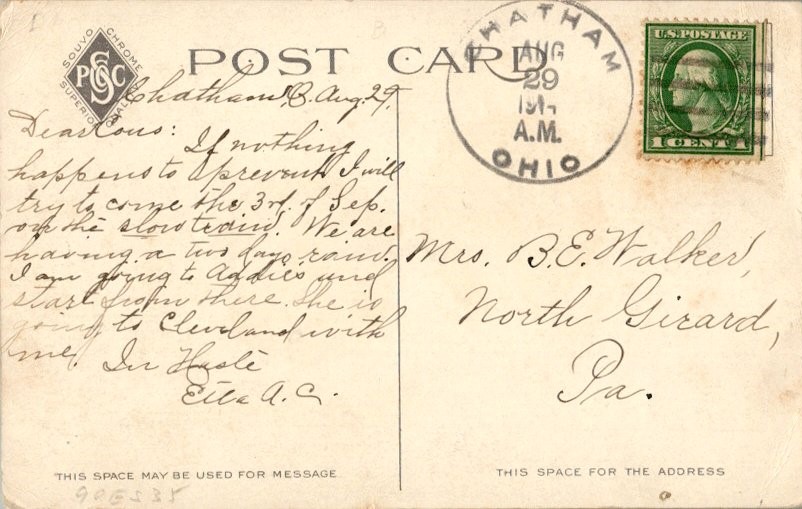 SOUVO CHROME
SUPERIOR QUALITY
POST CARD
CHATHAM
AUG
29
191
A.M.
OHIO
U.S. POSTAGE
1 CENT 1
Chatham, O. Aug. 29.
Dear Cous:
If nothing
happens to prevent I will
try to come the 3rd. of Sep.
on the slow train. We are
having a two days rain.
I am going to Addies and
start from there. She is
going to Cleveland with
me. In Haste
Etta A. C.
Mrs. B.E. Walker,
North Girard,
Pa.
THIS SPACE MAY BE USED FOR MESSAGE
THIS SPACE FOR THE ADDRESS